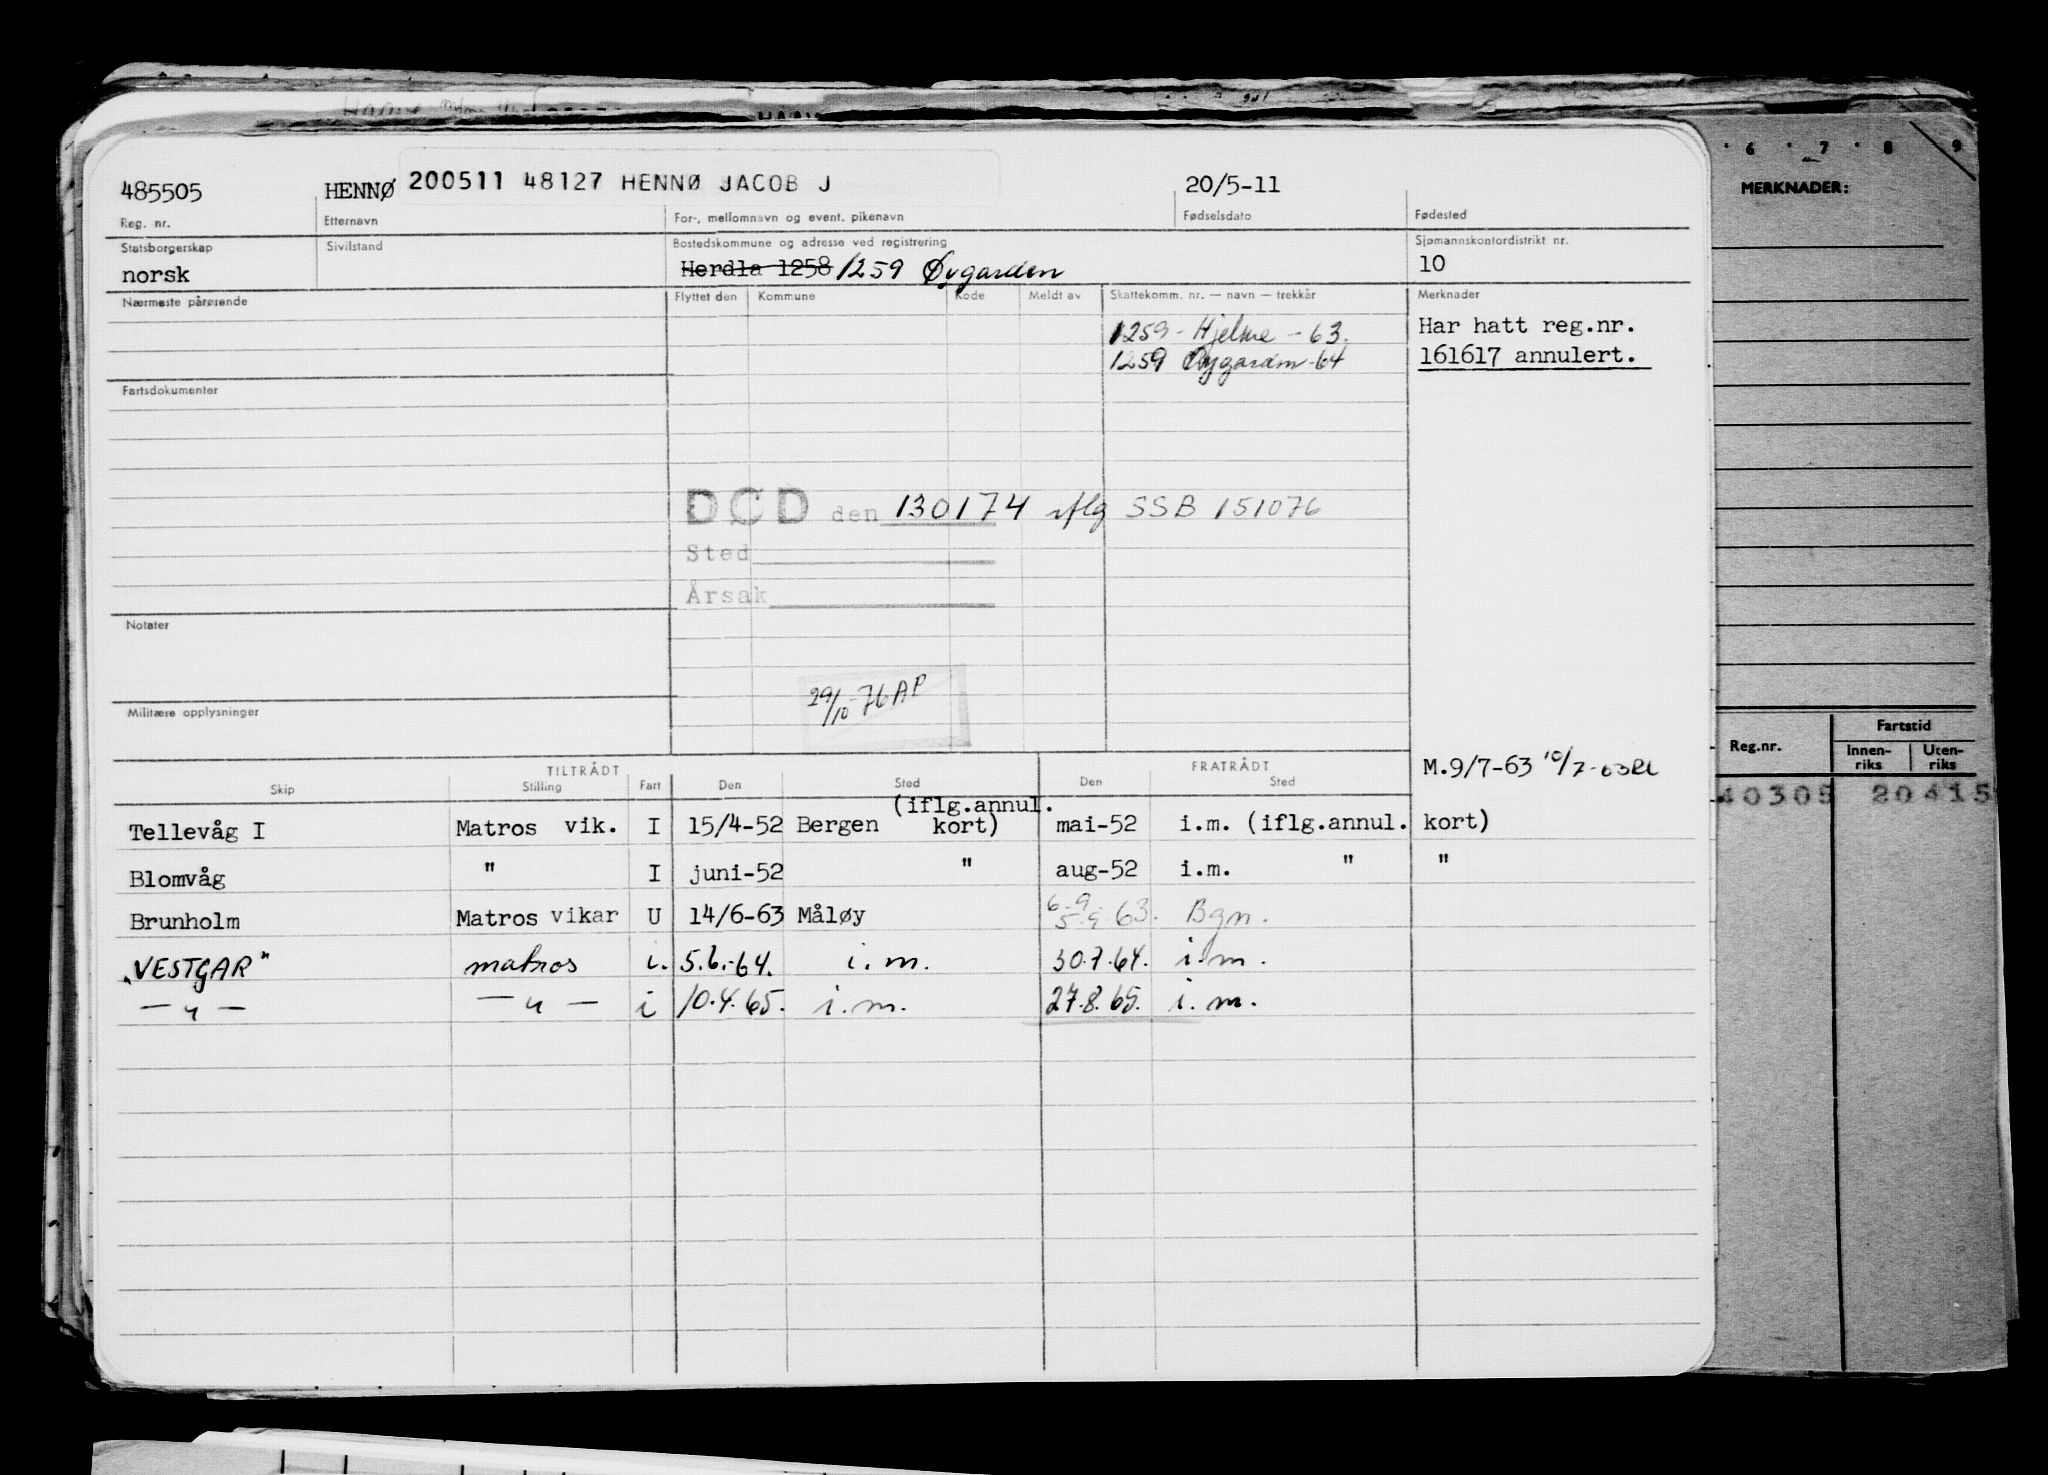 6 · 7 · 8 9
MERKNADER:
485505 HENNØ 200511 48127 HENNØ JACOB J 20/5-11
Reg. nr. Etternavn For-, mellomnavn og event. pikenavn Fødselsdato Fødested
Statsborgerskap Sivilstand Bostedskommune og adresse ved registrering Sjømannskontordistrikt nr.
norsk Herdla 1258 1259 Øygarden 10
Nærmeste pårørende Flyttet den Kommune Kode Meldt av Skattekomm. nr. — navn — trekkår Merknader
1259 - Hjelme - 63. Har hatt reg.nr.
1259 Øygarden - 64 161617 annulert.
Fartsdokumenter
DØD den 130174 iflg SSB 151076
Sted
Årsak
Notater
29/10-76 AP
Militære opplysninger
Reg.nr. Fartstid
Innen-riks Uten-riks
40305 20415
TILTRÅDT FRATRÅDT M.9/7-63 10/7-63
Skip Stilling Fart Den Sted Den Sted
(iflg.annul.
Tellevåg I Matros vik. I 15/4-52 Bergen kort) mai-52 i.m. (iflg.annul. kort)
Blomvåg " I juni-52 " aug-52 i.m. " "
Brunholm Matros vikar U 14/6-63 Måløy 6.9. 5.9.63. Bgn.
"VESTGAR" matros i. 5.6.-64. i.m. 30.7.64. i.m.
— " — — " — i 10.4.65. i.m. 27.8.65. i.m.